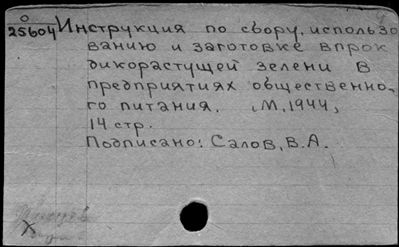 О
25604 Инструкция по сбору, использо
ванию и заготовке впрок
дикорастущей зелени в
предприятиях общественно-
го питания. М, 1944,
14 стр.
Подписано: Салов, В.А.